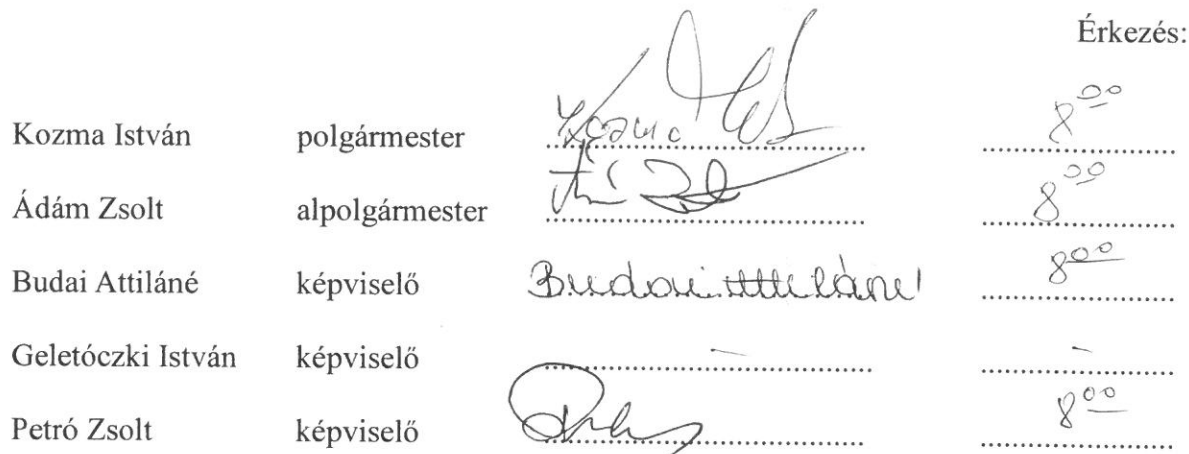 Érkezés:
Kozma István polgármester Kozma ........ 8 00
Ádám Zsolt alpolgármester ........ 8 00
Budai Attiláné képviselő Budai Attiláné 8 00
Geletóczki István képviselő ........ – ........ –
Petró Zsolt képviselő ........ 8 00